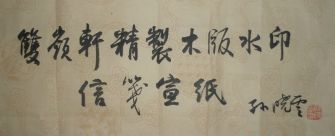 雙嶺軒精製木版水印
信箋宣紙 孙晓雲